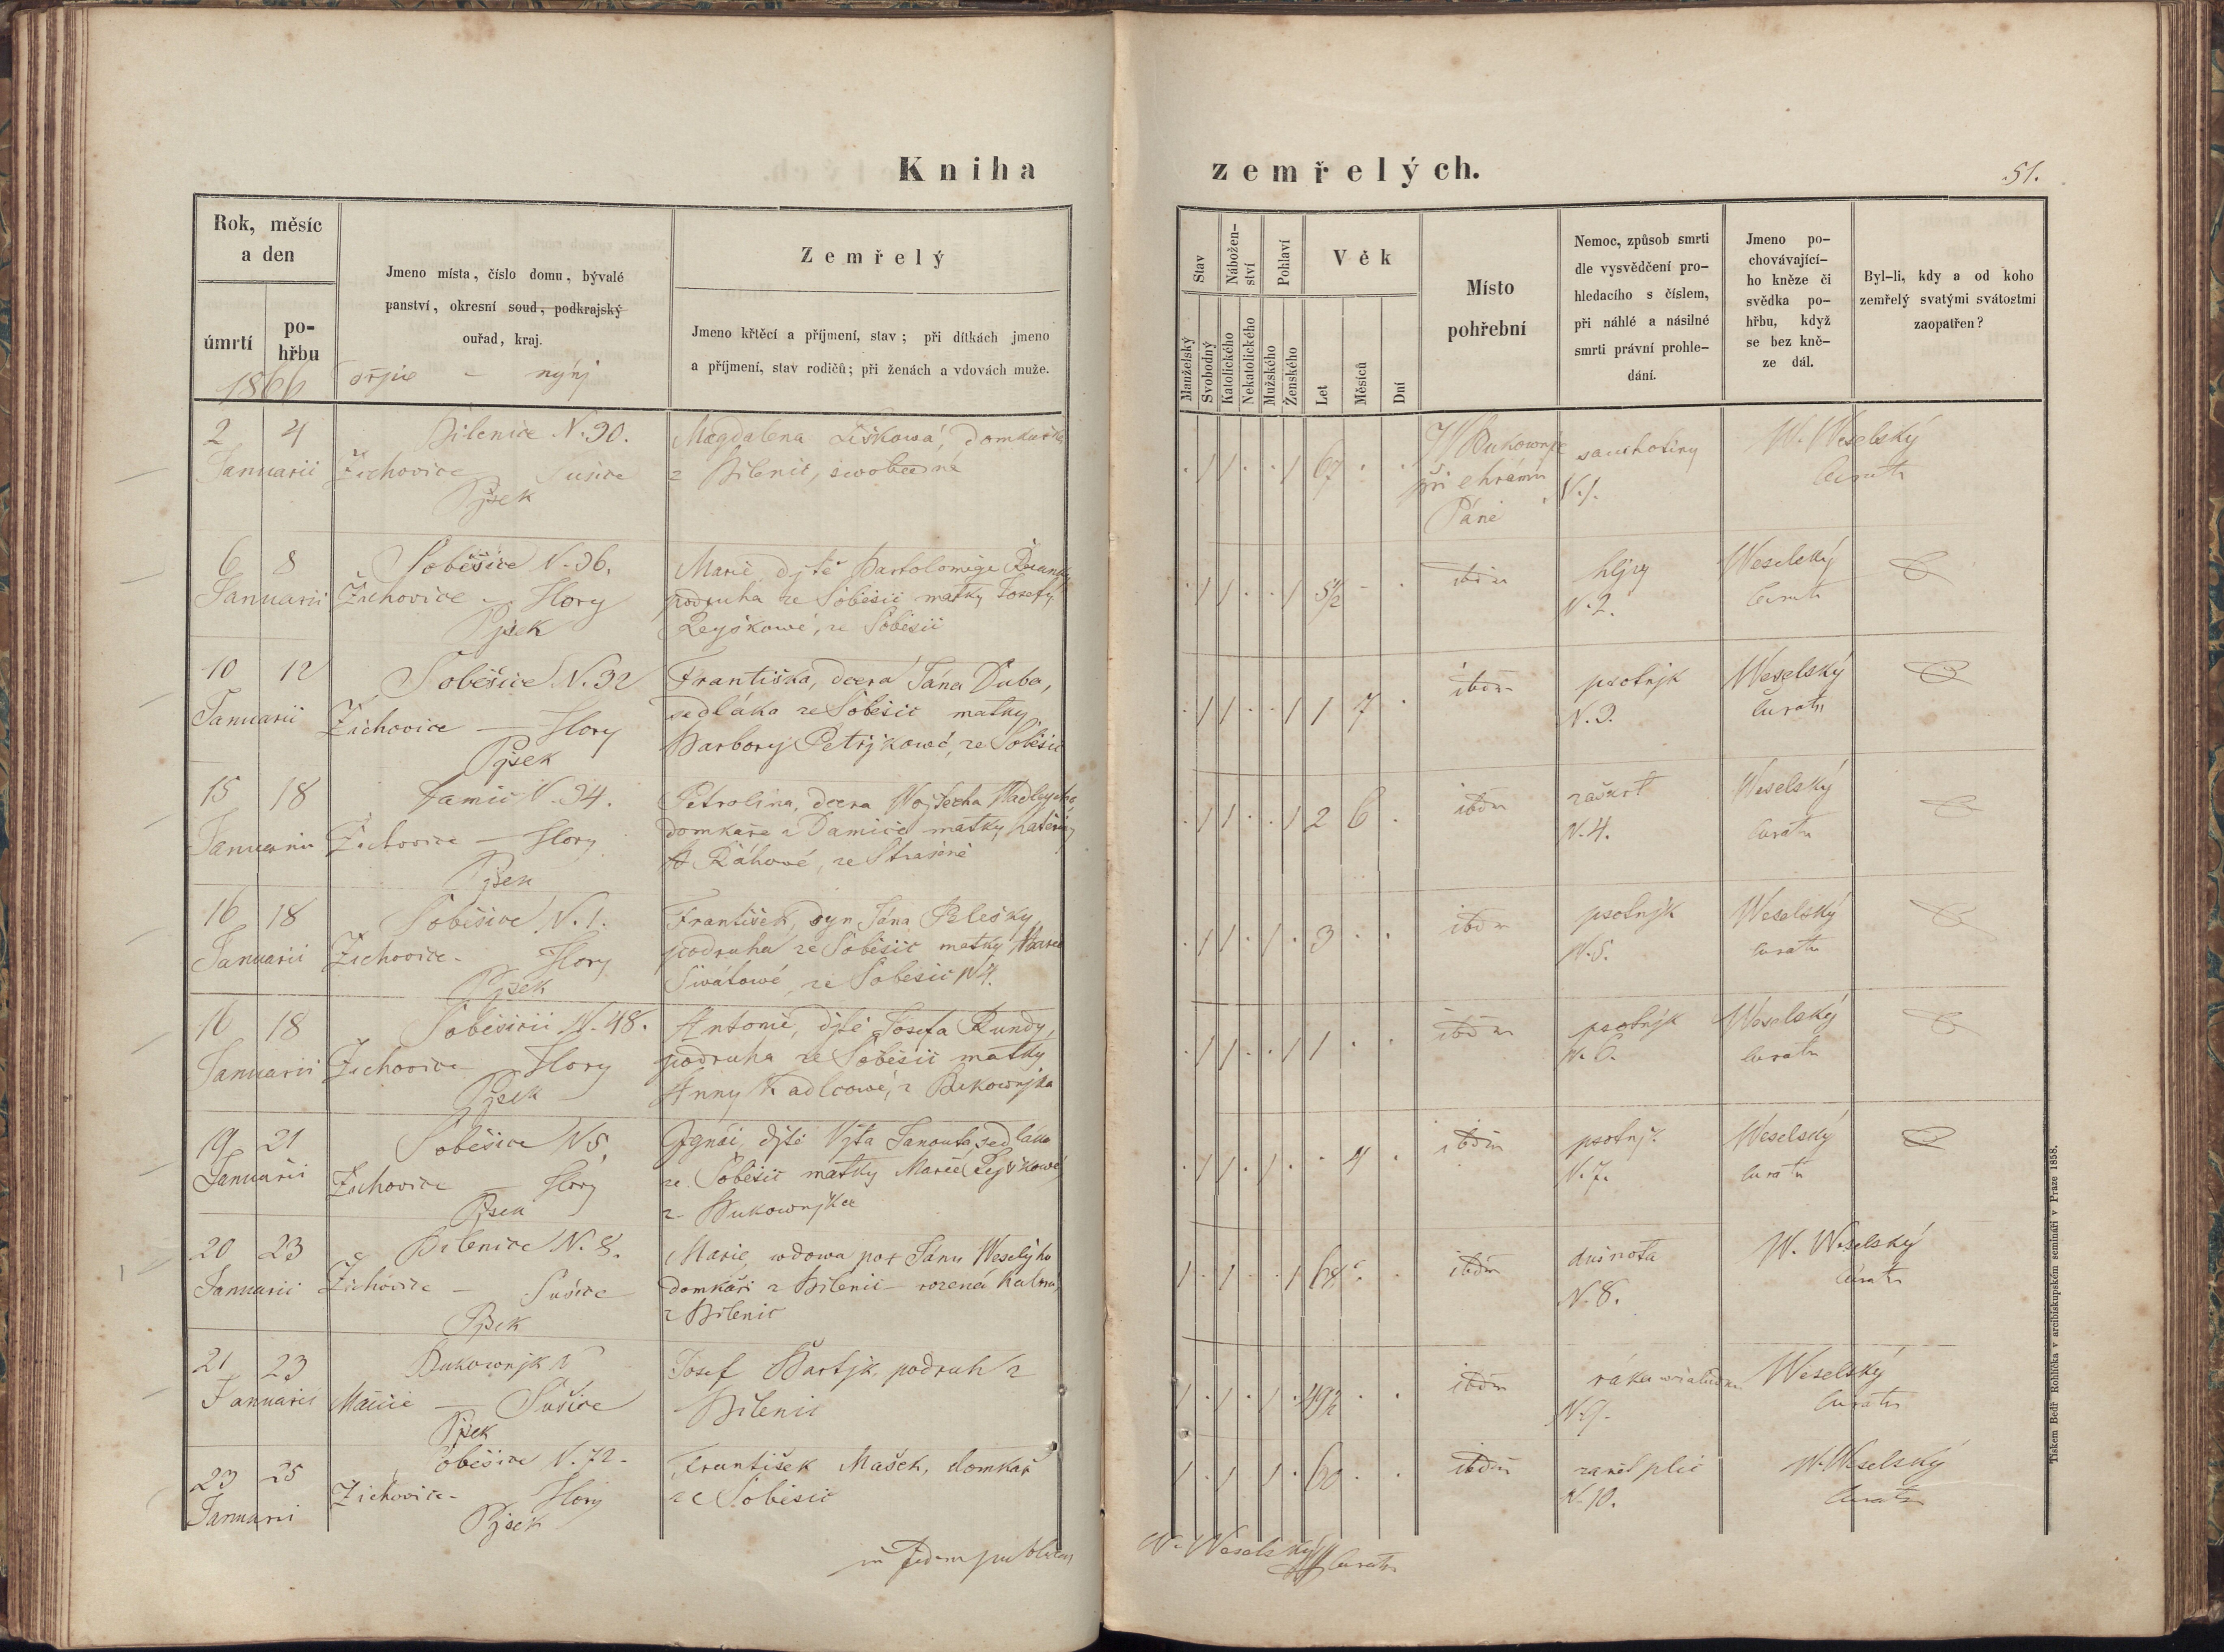 Kniha
zemřelých.
51.
Rok, měsíc
a den
úmrtí
po-
hřbu
1866
Jmeno místa, číslo domu, bývalé
panství, okresní soud, podkrajský
ouřad, kraj.
nynj
Zemřelý
Jmeno křtěcí a příjmení, stav; při dítkách jmeno
a příjmení, stav rodičů; při ženách a vdovách muže.
Stav
Manželský
Svobodný
Nábožen-
ství
Katolického
Nekatolického
Pohlaví
Mužského
Ženského
Věk
Let
Měsíců
Dní
Místo
pohřební
Nemoc, způsob smrti
dle vysvědčení pro-
hledacího s číslem,
při náhlé a násilné
smrti právní prohle-
dání.
Jmeno po-
chovávající-
ho kněze či
svědka po-
hřbu, když
se bez kně-
ze dál.
Byl-li, kdy a od koho
zemřelý svatými svátostmi
zaopatřen?
2 4
Januarii
Bilenice N. 30.
Žichovice Sušice
Pjsek
Magdalena Liškowá, domkařka
z Bilenic, swobodná
67
W Bukownjce
při chrámu
Páně
souchotiny
N. 1.
W. Weselský
Curatu
6 8
Januarii
Soběšice N. 36.
Žichovice - Hory
Pjsek
Marie djtě Bartoloměge
podruha ze Soběšic matky Josefy
ze Soběšic
5/2
ibdm
hljzy
N. 2.
Weselský
Curatu
10 12
Januarii
Soběšice N. 32
Žichovice - Hory
Pjsek
Františka, dcera Jána Duba,
sedláka ze Soběšic matky
Barbory Petřjkowé, ze Soběšic
1 7
ibdm
psotnjk
N. 3.
Weselský
Curatu
15 18
Januarii
Damic N. 34.
Žichovice - Hory
Pjsek
Petrolina, dcera Wojtěcha
domkaře z Damic matky Kateřiny
ze Strašině
2 6
ibdm
zaškrt
N. 4.
Weselský
Curatu
16 18
Januarii
Soběšice N. 1.
Žichovice - Hory
Pjsek
František, syn Jána
podruha ze Soběšic matky Marie
ze Soběšic N 4.
3
ibdm
psotnjk
N. 5.
Weselský
Curatu
16 18
Januarii
N. 48.
Žichovice Hory
Pjsek
Antonie, djtě Josefa Kundy,
podruha ze Soběšic matky
Anny Kadlcowé, z Bukownjka
1
ibdm
psotnjk
N. 6.
Weselský
Curatu
19 21
Januarii
Soběšice N 5.
Žichovice - Hory
Pjsek
Jgnác, djtě Vjta Janouta, sedláka
ze Soběšic matky Marie
z Bukownjka
4
ibdm
psotnjk
N. 7.
Weselský
Curatu
20 23
Januarii
Bilenice N. 8.
Žichovice - Sušice
Pjsek
Marie, wdowa po Jánu Weselýho
domkáři z Bilenic - rozená
z Bilenic
ibdm
dušnota
N. 8.
W. Weselský
Curatu
21 23
Januarii
Bukownjk
- Sušice
Pjsek
Josef Bartjk, podruh z
Bilenic
49½
ibdm
N. 9.
Weselský
Curatu
23 25
Januarii
Soběšice N. 72.
Žichovice - Hory
Pjsek
František Mašek, domkař
ze Soběšic
60
ibdm
zanět plic
N. 10.
W. Weselský
Curatu
in fidem publicam
W. Weselský Curatu
Tiskem Bedř Rohlíčka v arcibiskupském semináři v Praze 1858.